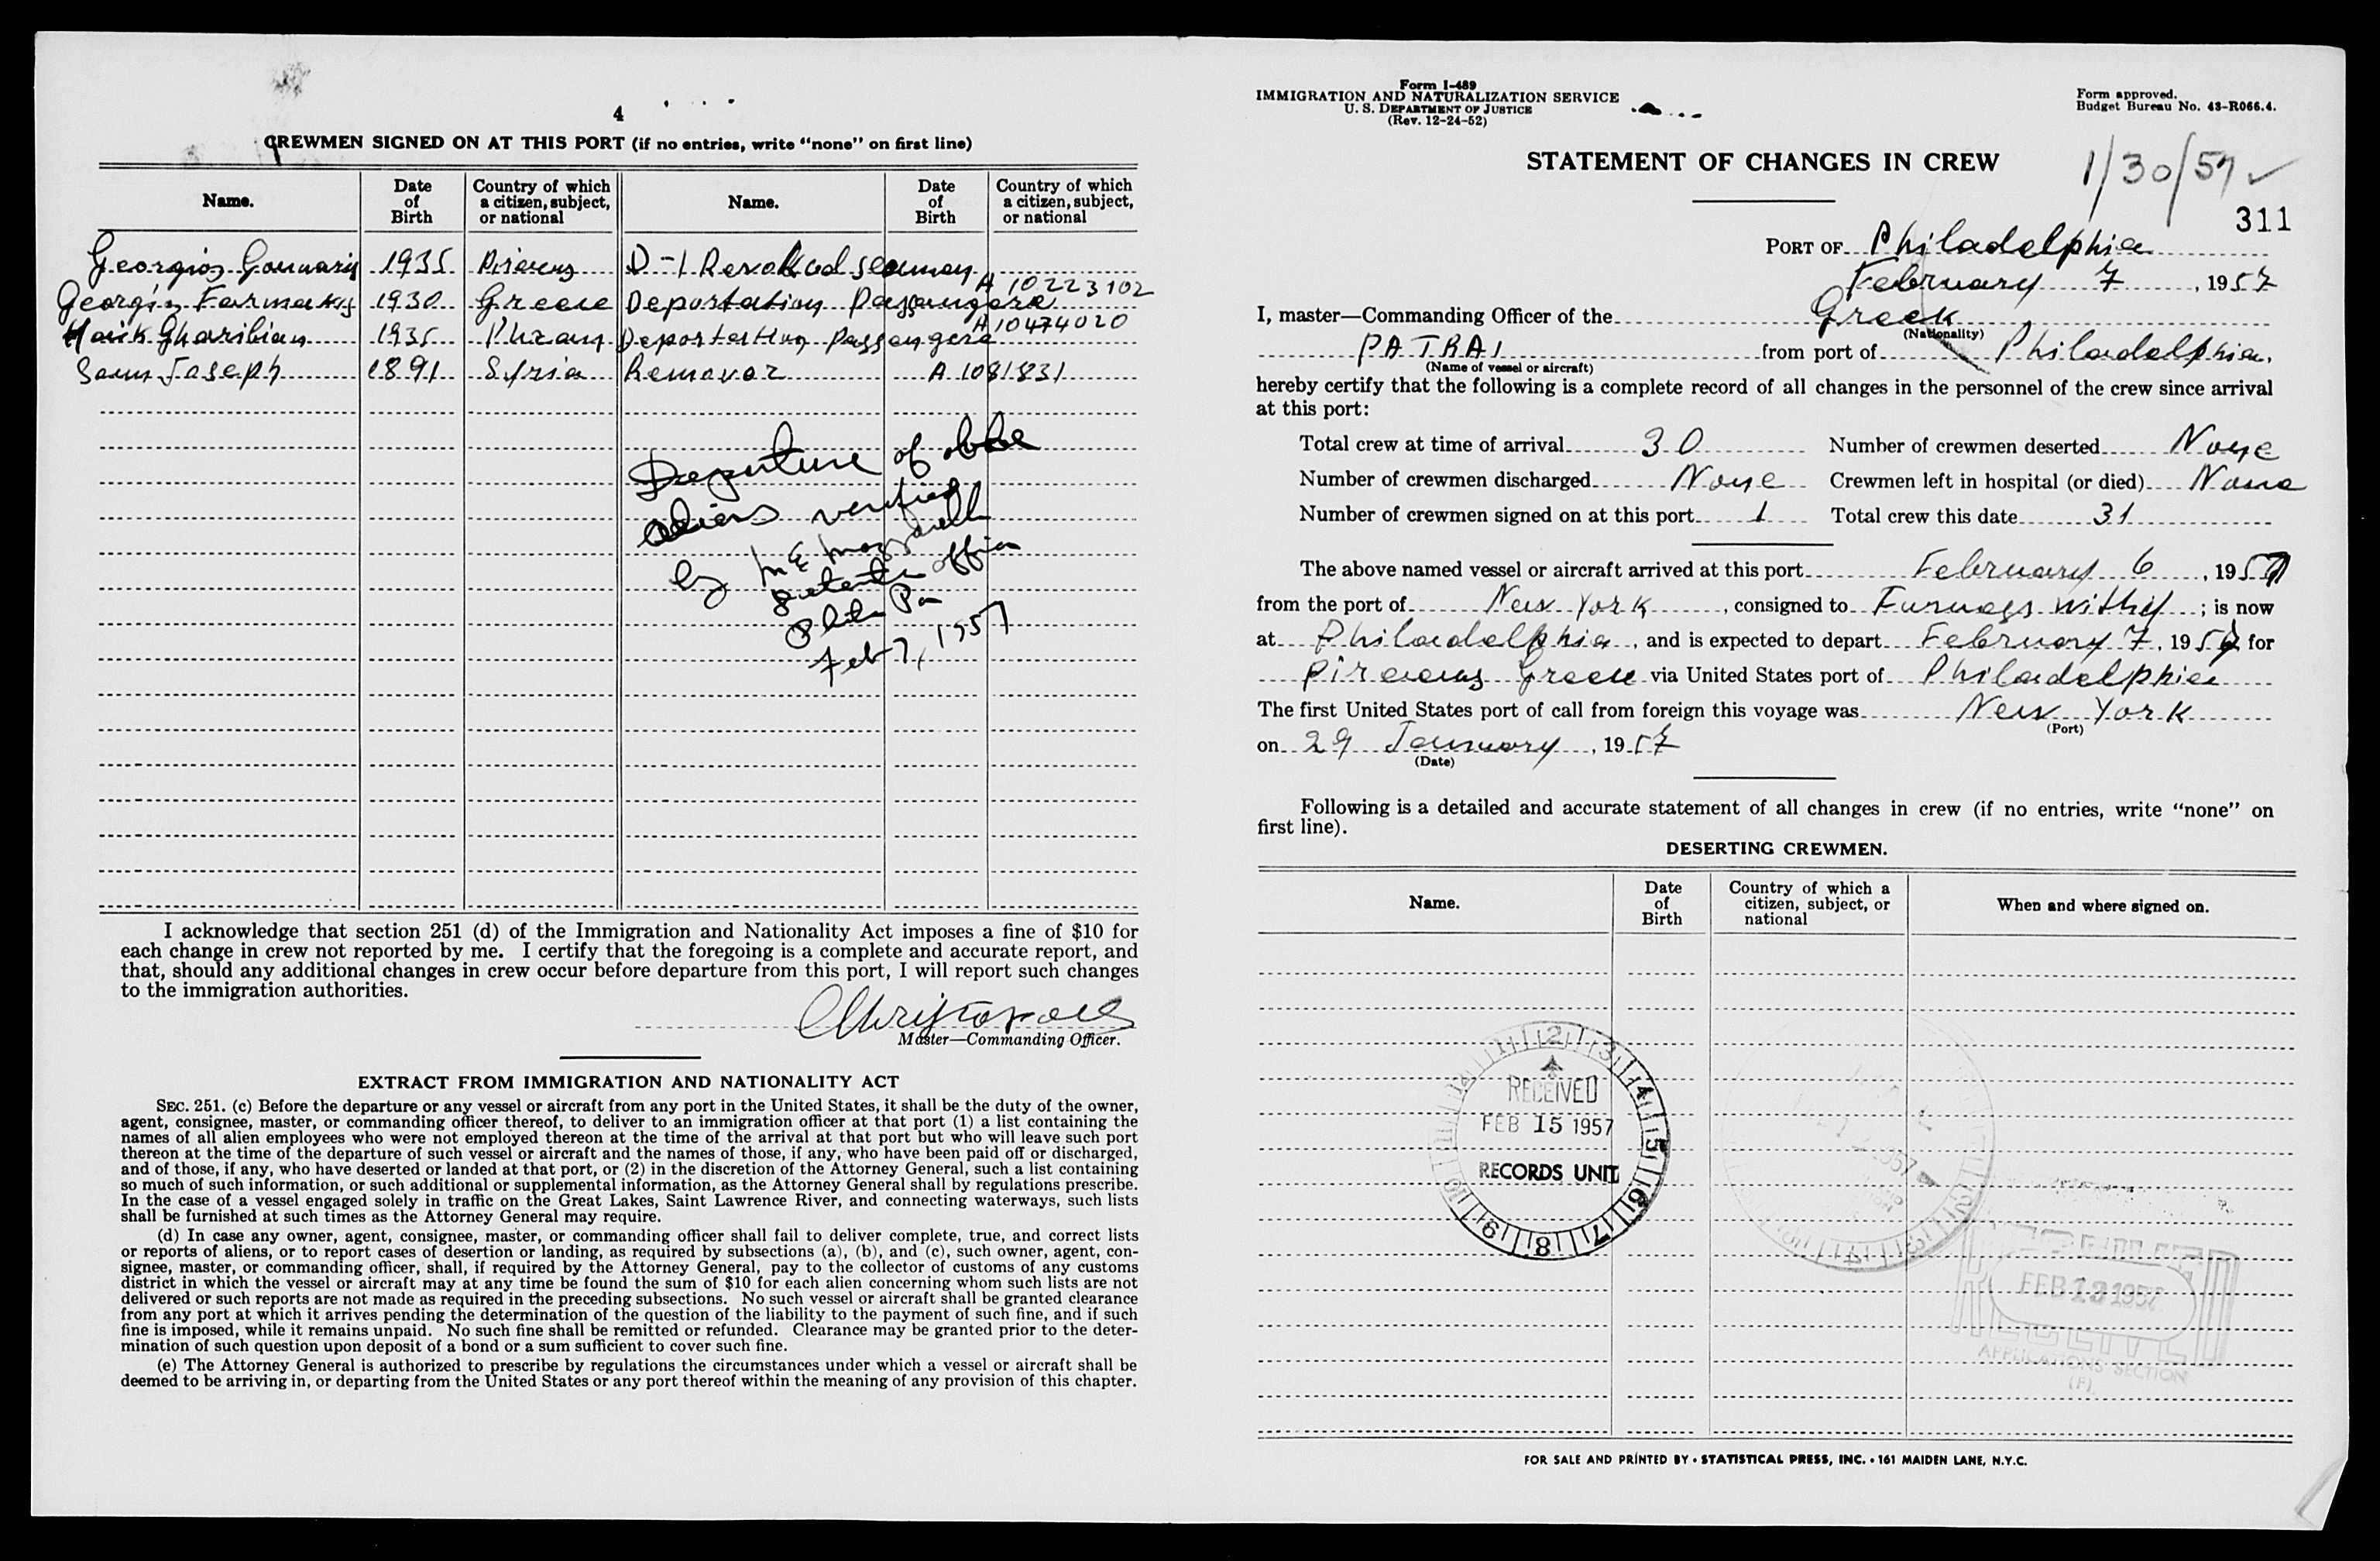 4
CREWMEN SIGNED ON AT THIS PORT (if no entries, write “none” on first line)
Name. Date of Birth Country of which a citizen, subject, or national Name. Date of Birth Country of which a citizen, subject, or national
Georgios Gounaris 1935 Pireeus D-1 Revoked seaman
Georgios Farmakis 1930 Greece Deportation Passangers A 10223102
Haik Gharibian 1935 Deportation Passangers A 10474020
Sam Joseph 1891 Syria Removar A 1081831
Departure of above
aliens verified
by
officer
Phila Pa
Feb 7, 1957
I acknowledge that section 251 (d) of the Immigration and Nationality Act imposes a fine of $10 for
each change in crew not reported by me. I certify that the foregoing is a complete and accurate report, and
that, should any additional changes in crew occur before departure from this port, I will report such changes
to the immigration authorities.
Master—Commanding Officer.
EXTRACT FROM IMMIGRATION AND NATIONALITY ACT
SEC. 251. (c) Before the departure or any vessel or aircraft from any port in the United States, it shall be the duty of the owner,
agent, consignee, master, or commanding officer thereof, to deliver to an immigration officer at that port (1) a list containing the
names of all alien employees who were not employed thereon at the time of the arrival at that port but who will leave such port
thereon at the time of the departure of such vessel or aircraft and the names of those, if any, who have been paid off or discharged,
and of those, if any, who have deserted or landed at that port, or (2) in the discretion of the Attorney General, such a list containing
so much of such information, or such additional or supplemental information, as the Attorney General shall by regulations prescribe.
In the case of a vessel engaged solely in traffic on the Great Lakes, Saint Lawrence River, and connecting waterways, such lists
shall be furnished at such times as the Attorney General may require.
(d) In case any owner, agent, consignee, master, or commanding officer shall fail to deliver complete, true, and correct lists
or reports of aliens, or to report cases of desertion or landing, as required by subsections (a), (b), and (c), such owner, agent, con-
signee, master, or commanding officer, shall, if required by the Attorney General, pay to the collector of customs of any customs
district in which the vessel or aircraft may at any time be found the sum of $10 for each alien concerning whom such lists are not
delivered or such reports are not made as required in the preceding subsections. No such vessel or aircraft shall be granted clearance
from any port at which it arrives pending the determination of the question of the liability to the payment of such fine, and if such
fine is imposed, while it remains unpaid. No such fine shall be remitted or refunded. Clearance may be granted prior to the deter-
mination of such question upon deposit of a bond or a sum sufficient to cover such fine.
(e) The Attorney General is authorized to prescribe by regulations the circumstances under which a vessel or aircraft shall be
deemed to be arriving in, or departing from the United States or any port thereof within the meaning of any provision of this chapter.
Form I-489
IMMIGRATION AND NATURALIZATION SERVICE
U. S. DEPARTMENT OF JUSTICE
(Rev. 12-24-52)
Form approved.
Budget Bureau No. 43-R066.4.
STATEMENT OF CHANGES IN CREW
1/30/57 ✓
311
PORT OF Philadelphia
February 7, 1957
I, master—Commanding Officer of the Greek
(Nationality)
PATRAI from port of Philadelphia.
(Name of vessel or aircraft)
hereby certify that the following is a complete record of all changes in the personnel of the crew since arrival
at this port:
Total crew at time of arrival 30 Number of crewmen deserted None
Number of crewmen discharged None Crewmen left in hospital (or died) None
Number of crewmen signed on at this port 1 Total crew this date 31
The above named vessel or aircraft arrived at this port February 6, 1957
from the port of New York, consigned to Furness Withy; is now
at Philadelphia, and is expected to depart February 7, 1957 for
Pireaeus Greece via United States port of Philadelphia
The first United States port of call from foreign this voyage was New York
(Port)
on 29 January, 1957
(Date)
Following is a detailed and accurate statement of all changes in crew (if no entries, write “none” on
first line).
DESERTING CREWMEN.
Name. Date of Birth Country of which a citizen, subject, or national When and where signed on.
1 2 3 4 5 6 7 8 9
RECEIVED
FEB 15 1957
RECORDS UNIT
FEB 13 1957
RECEIVED
APPLICATIONS SECTION
(F)
FOR SALE AND PRINTED BY • STATISTICAL PRESS, INC. • 161 MAIDEN LANE, N.Y.C.